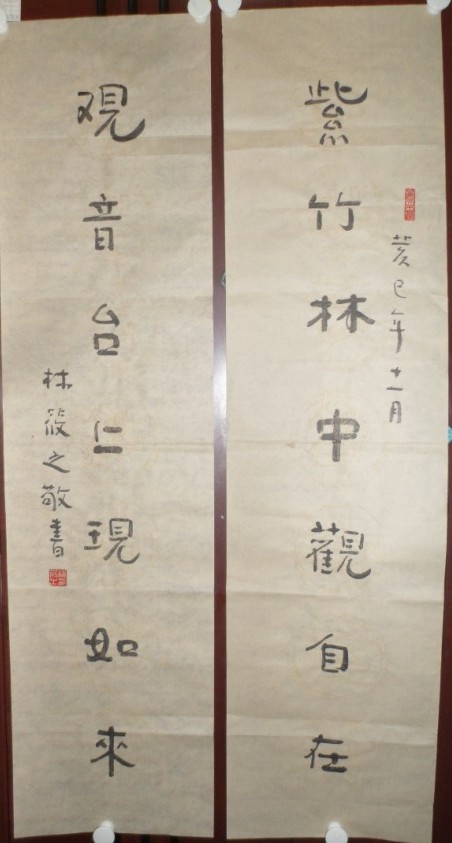 紫竹林中觀自在
癸巳年十一月
覌音台仁現如來
林筱之敬書